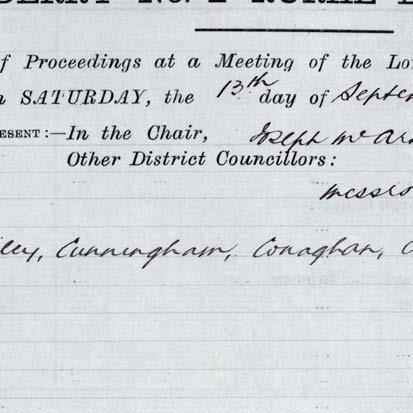 DERRY No. 2 RURAL D
f Proceedings at a Meeting of the Lo
n SATURDAY, the 13th day of Septem
ESENT:—In the Chair, Joseph McAr
Other District Councillors:
Messrs
ley, Cunningham, Conaghan, C